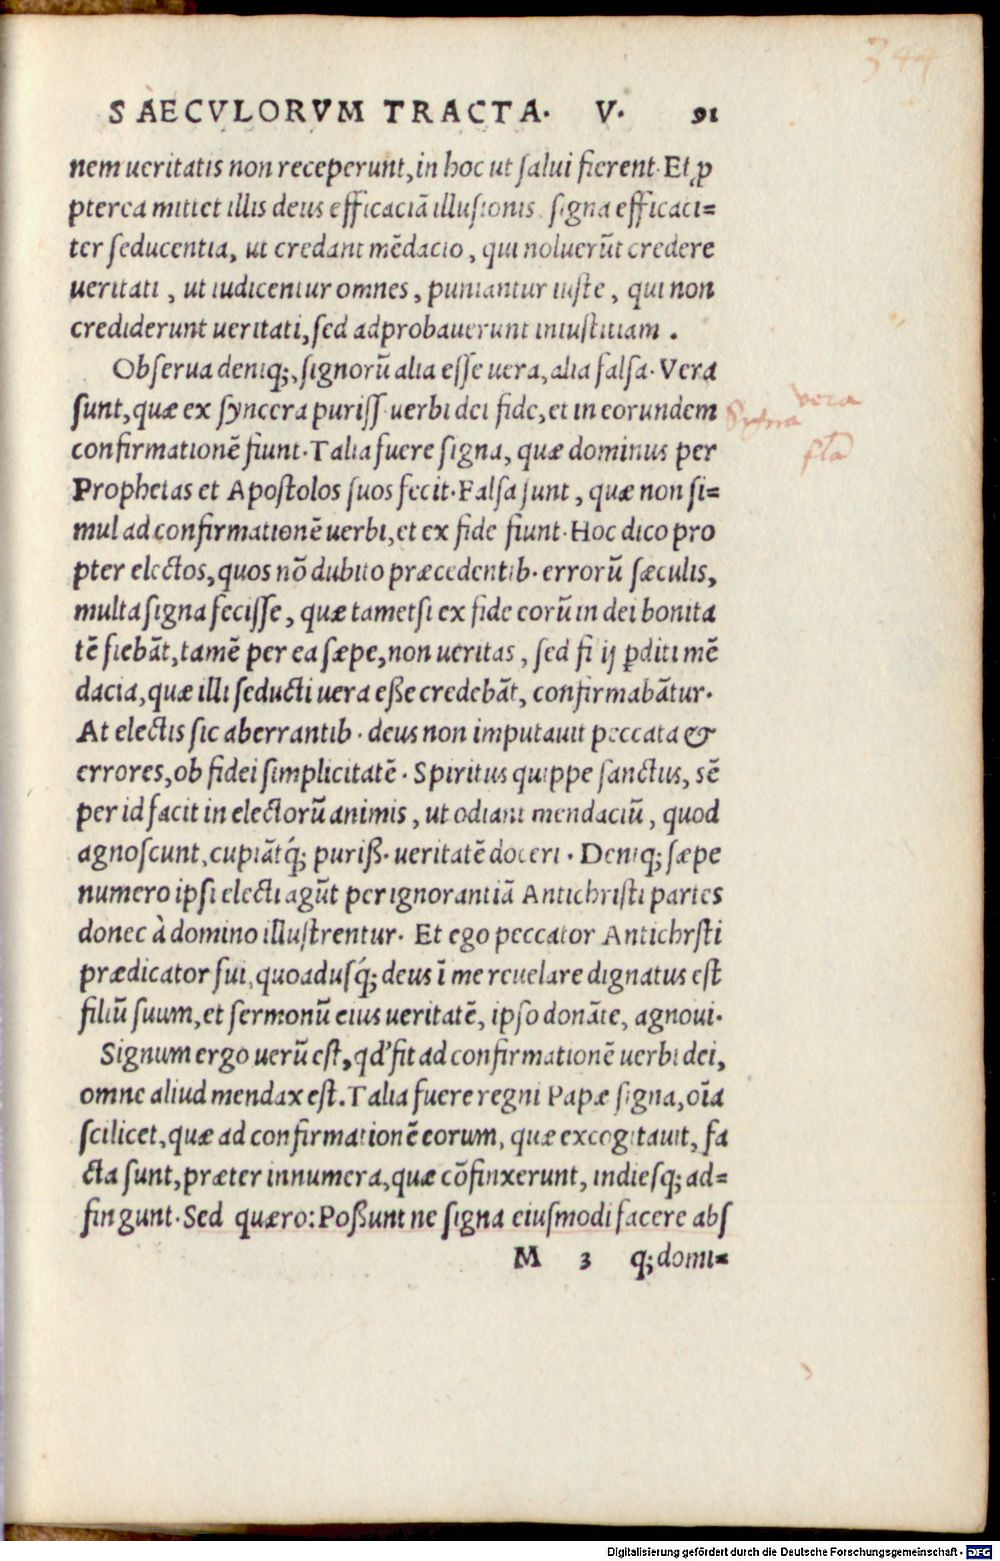 344
SAECVLORVM TRACTA. V. 91
nem ueritatis non receperunt, in hoc ut salui fierent. Et ꝓ
pterea mittet illis deus efficaciā illusionis signa efficaci=
ter seducentia, ut credant mēdacio, qui noluerūt credere
ueritati, ut iudicentur omnes, puniantur iuste, qui non
crediderunt ueritati, sed adprobauerunt iniustitiam.
Obserua deniq;, signorū alia esse uera, alia falsa. Vera
sunt, quæ ex syncera puriss. uerbi dei fide, et in eorundem
confirmationē fiunt. Talia fuere signa, quæ dominus per
Prophetas et Apostolos suos fecit. Falsa sunt, quæ non si=
mul ad confirmationē uerbi, et ex fide fiunt. Hoc dico pro
pter electos, quos nō dubito præcedentib. errorū sæculis,
multa signa fecisse, quæ tametsi ex fide eorū in dei bonita
tē fiebāt, tamē per ea sæpe, non ueritas, sed fi ij ꝑditi mē
dacia, quæ illi seducti uera eße credebāt, confirmabātur.
At electis sic aberrantib. deus non imputauit peccata &
errores, ob fidei simplicitatē. Spiritus quippe sanctus, sē
per id facit in electorū animis, ut odiant mendaciū, quod
agnoscunt, cupiātq́; puriß. ueritatē doceri. Deniq; sæpe
numero ipsi electi agūt per ignorantiā Antichristi partes
donec à domino illustrentur. Et ego peccator Antichrsti
prædicator fui, quoadusq́; deus ī me reuelare dignatus est
filiū suum, et sermonū eius ueritatē, ipso donāte, agnoui.
Signum ergo uerū est, qd' fit ad confirmationē uerbi dei,
omne aliud mendax est. Talia fuere regni Papæ signa, oīa
scilicet, quæ ad confirmationē eorum, quæ excogitauit, fa
cta sunt, præter innumera, quæ cōfinxerunt, indiesq; ad=
fingunt. Sed quæro: Poßunt ne signa eiusmodi facere abs
M 3 q; domi=
Signa vera
Digitalisierung gefördert durch die Deutsche Forschungsgemeinschaft - DFG